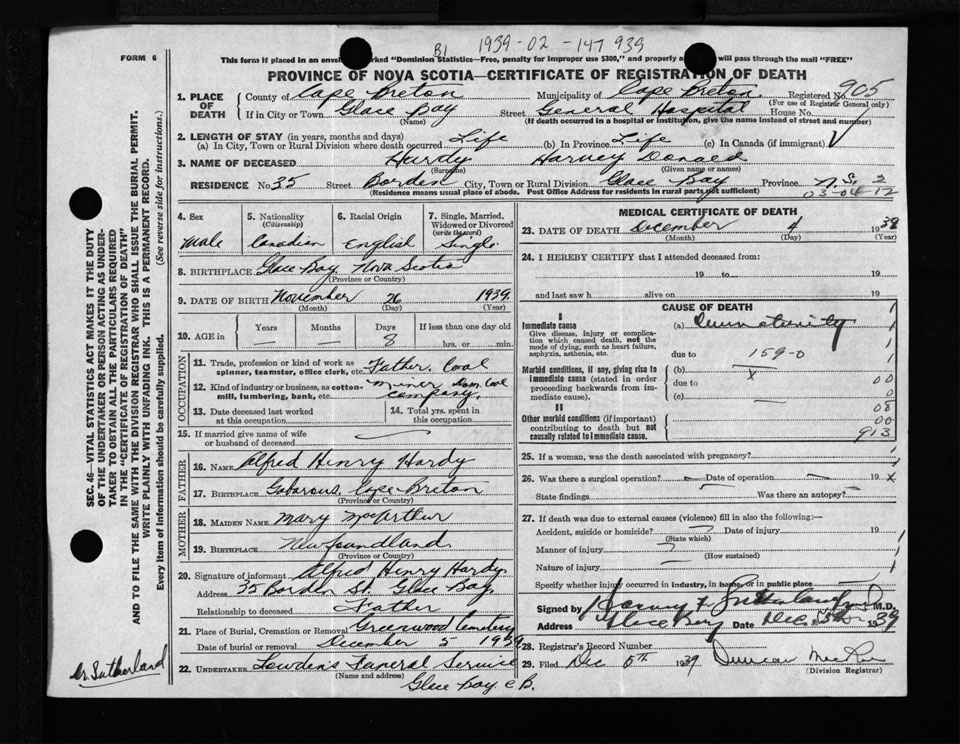 B1 1939-02-147939
FORM 6
This form if placed in an envelope marked "Dominion Statistics—Free, penalty for improper use $300," and properly will pass through the mail "FREE"
PROVINCE OF NOVA SCOTIA—CERTIFICATE OF REGISTRATION OF DEATH
1. PLACE OF DEATH County of Cape Breton Municipality of Cape Breton Registered No. 905
(For use of Registrar General only)
If in City or Town Glace Bay (Name) Street General Hospital House No.
(If death occurred in a hospital or institution, give the name instead of street and number)
2. LENGTH OF STAY (in years, months and days)
(a) In City, Town or Rural Division where death occurred Life (b) In Province Life (c) In Canada (if immigrant)
3. NAME OF DECEASED Hardy Harvey Donald
(Surname) (Given name or names)
RESIDENCE No. 35 Street Borden City, Town or Rural Division Glace Bay Province N.S.
(Residence means usual place of abode. Post Office Address for residents in rural parts not sufficient)
4. Sex Male
5. Nationality (Citizenship) Canadian
6. Racial Origin English
7. Single, Married, Widowed or Divorced (write the word) Single
8. BIRTHPLACE Glace Bay, Nova Scotia
(Province or Country)
9. DATE OF BIRTH November 26 1939
(Month) (Day) (Year)
10. AGE in Years — Months — Days 8 If less than one day old hrs. or min.
OCCUPATION
11. Trade, profession or kind of work as spinner, teamster, office clerk, etc. Father, Coal
12. Kind of industry or business, as cotton-mill, lumbering, bank, etc. Miner Dom. Coal Company.
13. Date deceased last worked at this occupation
14. Total yrs. spent in this occupation
15. If married give name of wife or husband of deceased
FATHER
16. NAME Alfred Henry Hardy
17. BIRTHPLACE Gabarous, Cape Breton
(Province or Country)
MOTHER
18. MAIDEN NAME Mary MacArthur
19. BIRTHPLACE Newfoundland
(Province or Country)
20. Signature of informant Alfred Henry Hardy
Address 35 Borden St. Glace Bay.
Relationship to deceased Father
21. Place of Burial, Cremation or Removal Greenwood Cemetery
Date of burial or removal December 5 1939
22. UNDERTAKER Lowden's Funeral Service
(Name and address)
Glace Bay C.B.
MEDICAL CERTIFICATE OF DEATH
23. DATE OF DEATH December 4 1939
(Month) (Day) (Year)
24. I HEREBY CERTIFY that I attended deceased from:
19 to 19
and last saw h alive on 19
CAUSE OF DEATH
I
Immediate cause
Give disease, injury or complication which caused death, not the mode of dying, such as heart failure, asphyxia, asthenia, etc.
(a)
due to 159-0
Morbid conditions, if any, giving rise to immediate cause (stated in order proceeding backwards from immediate cause).
(b)
due to x
(c)
II
Other morbid conditions (if important) contributing to death but not causally related to immediate cause.
00
0
08
00
913
25. If a woman, was the death associated with pregnancy?
26. Was there a surgical operation? Date of operation 19 x
State findings Was there an autopsy?
27. If death was due to external causes (violence) fill in also the following:—
Accident, suicide or homicide? Date of injury 19
(State which)
Manner of injury
(How sustained)
Nature of injury
Specify whether injury occurred in industry, in home, or in public place
Signed by Harvey F. Sutherland M.D.
Address Glace Bay Date Dec. 1939
28. Registrar's Record Number
29. Filed Dec 5th 1939 Duncan
(Division Registrar)
SEC. 46—VITAL STATISTICS ACT MAKES IT THE DUTY
OF THE UNDERTAKER OR PERSON ACTING AS UNDER-
TAKER TO OBTAIN ALL THE PARTICULARS REQUIRED
IN THE "CERTIFICATE OF REGISTRATION OF DEATH"
AND TO FILE THE SAME WITH THE DIVISION REGISTRAR WHO SHALL ISSUE THE BURIAL PERMIT.
WRITE PLAINLY WITH UNFADING INK. THIS IS A PERMANENT RECORD.
Every item of information should be carefully supplied. (See reverse side for instructions.)
Dr. Sutherland